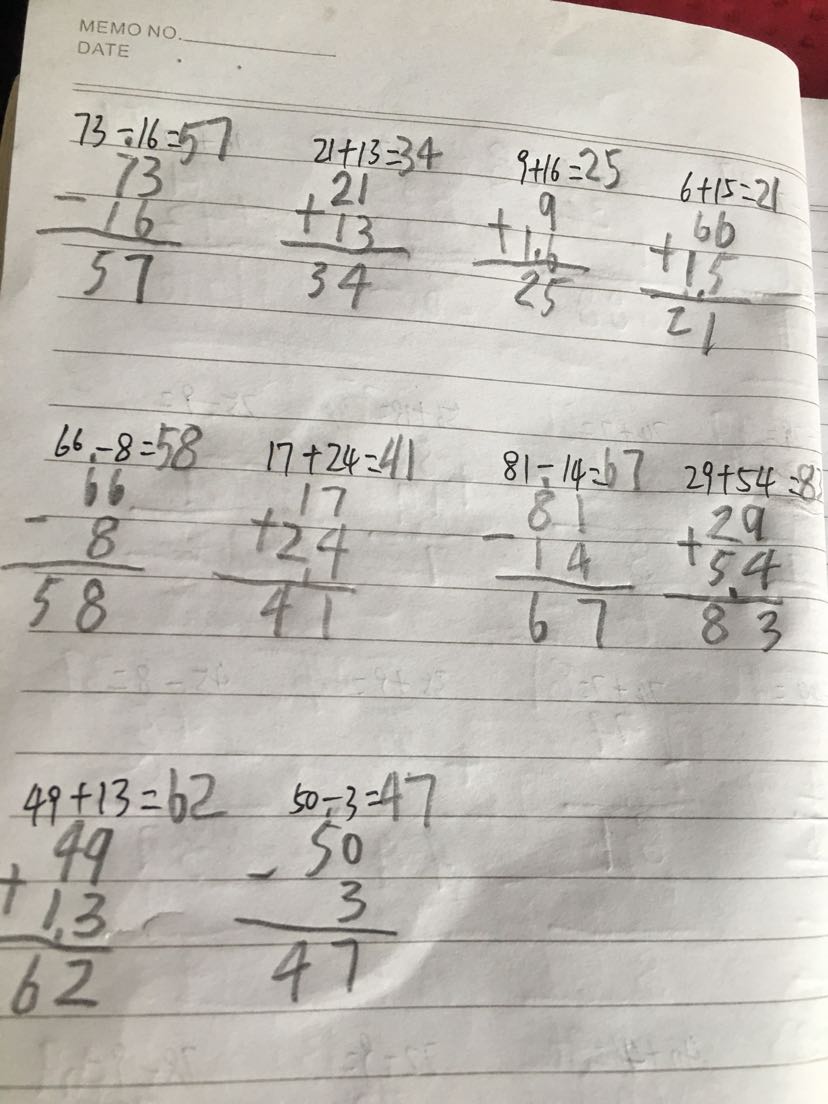 MEMO NO.
DATE
73-16=57 21+13=34 9+16=25 6+15=21
73 21 9 66
-16 +13 +16 +15
57 34 25 21
66-8=58 17+24=41 81-14=67 29+54=83
66 17 81 29
-8 +24 -14 +54
58 41 67 83
49+13=62 50-3=47
49 50
+13 -3
62 47